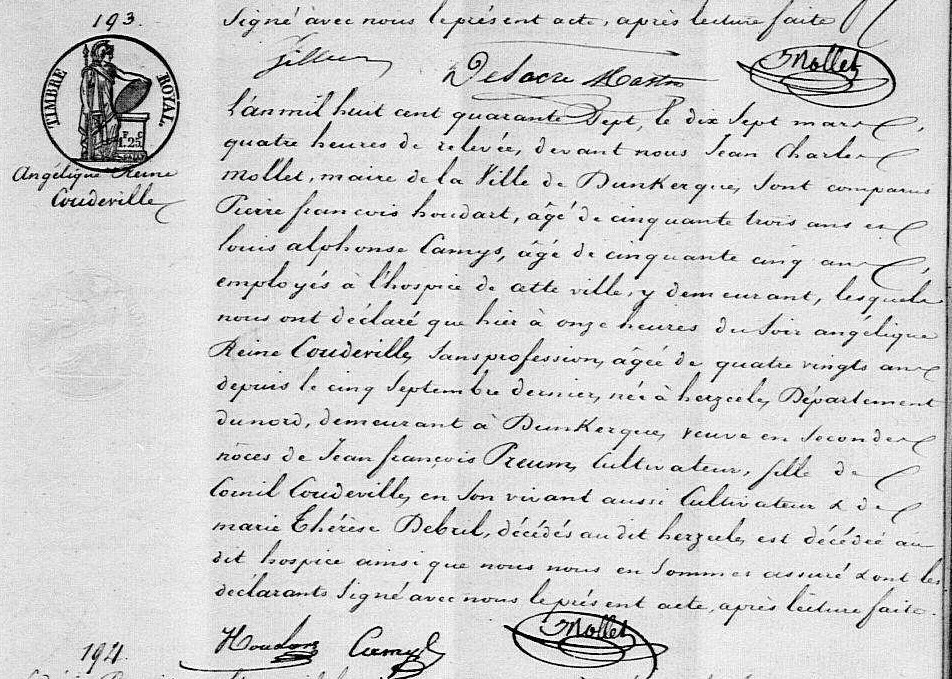 193.
signé avec nous le présent acte, après lecture faite
Delacre
Mollet
TIMBRE ROYAL
1.25
Angélique Reine
Coudeville
L'an mil huit cent quarante Sept, le dix Sept mars
quatre heures de relevée, devant nous Jean Charles
Mollet, maire de la Ville de Dunkerque, Sont comparus
Pierre françois houdart, âgé de cinquante trois ans et
louis alphonse Camys, âgé de cinquante cinq ans,
employés à l'hospice de cette ville, y demeurant, lesquels
nous ont déclaré que hier à onze heures du Soir angélique
Reine Coudeville, Sans profession, âgée de quatre vingts ans
depuis le cinq Septembre dernier, née à herzeele, Département
du nord, demeurant à Dunkerque, veuve en Secondes
nôces de Jean françois Preum, Cultivateur, fille de
Cornil Coudeville, en Son vivant aussi Cultivateur & de
marie Thérèse Debril, décédés au dit herzeele, est décédée au
dit hospice ainsi que nous nous en Sommes assuré & ont les
déclarants Signé avec nous le présent acte, après lecture faite.
Camys
Mollet
194.